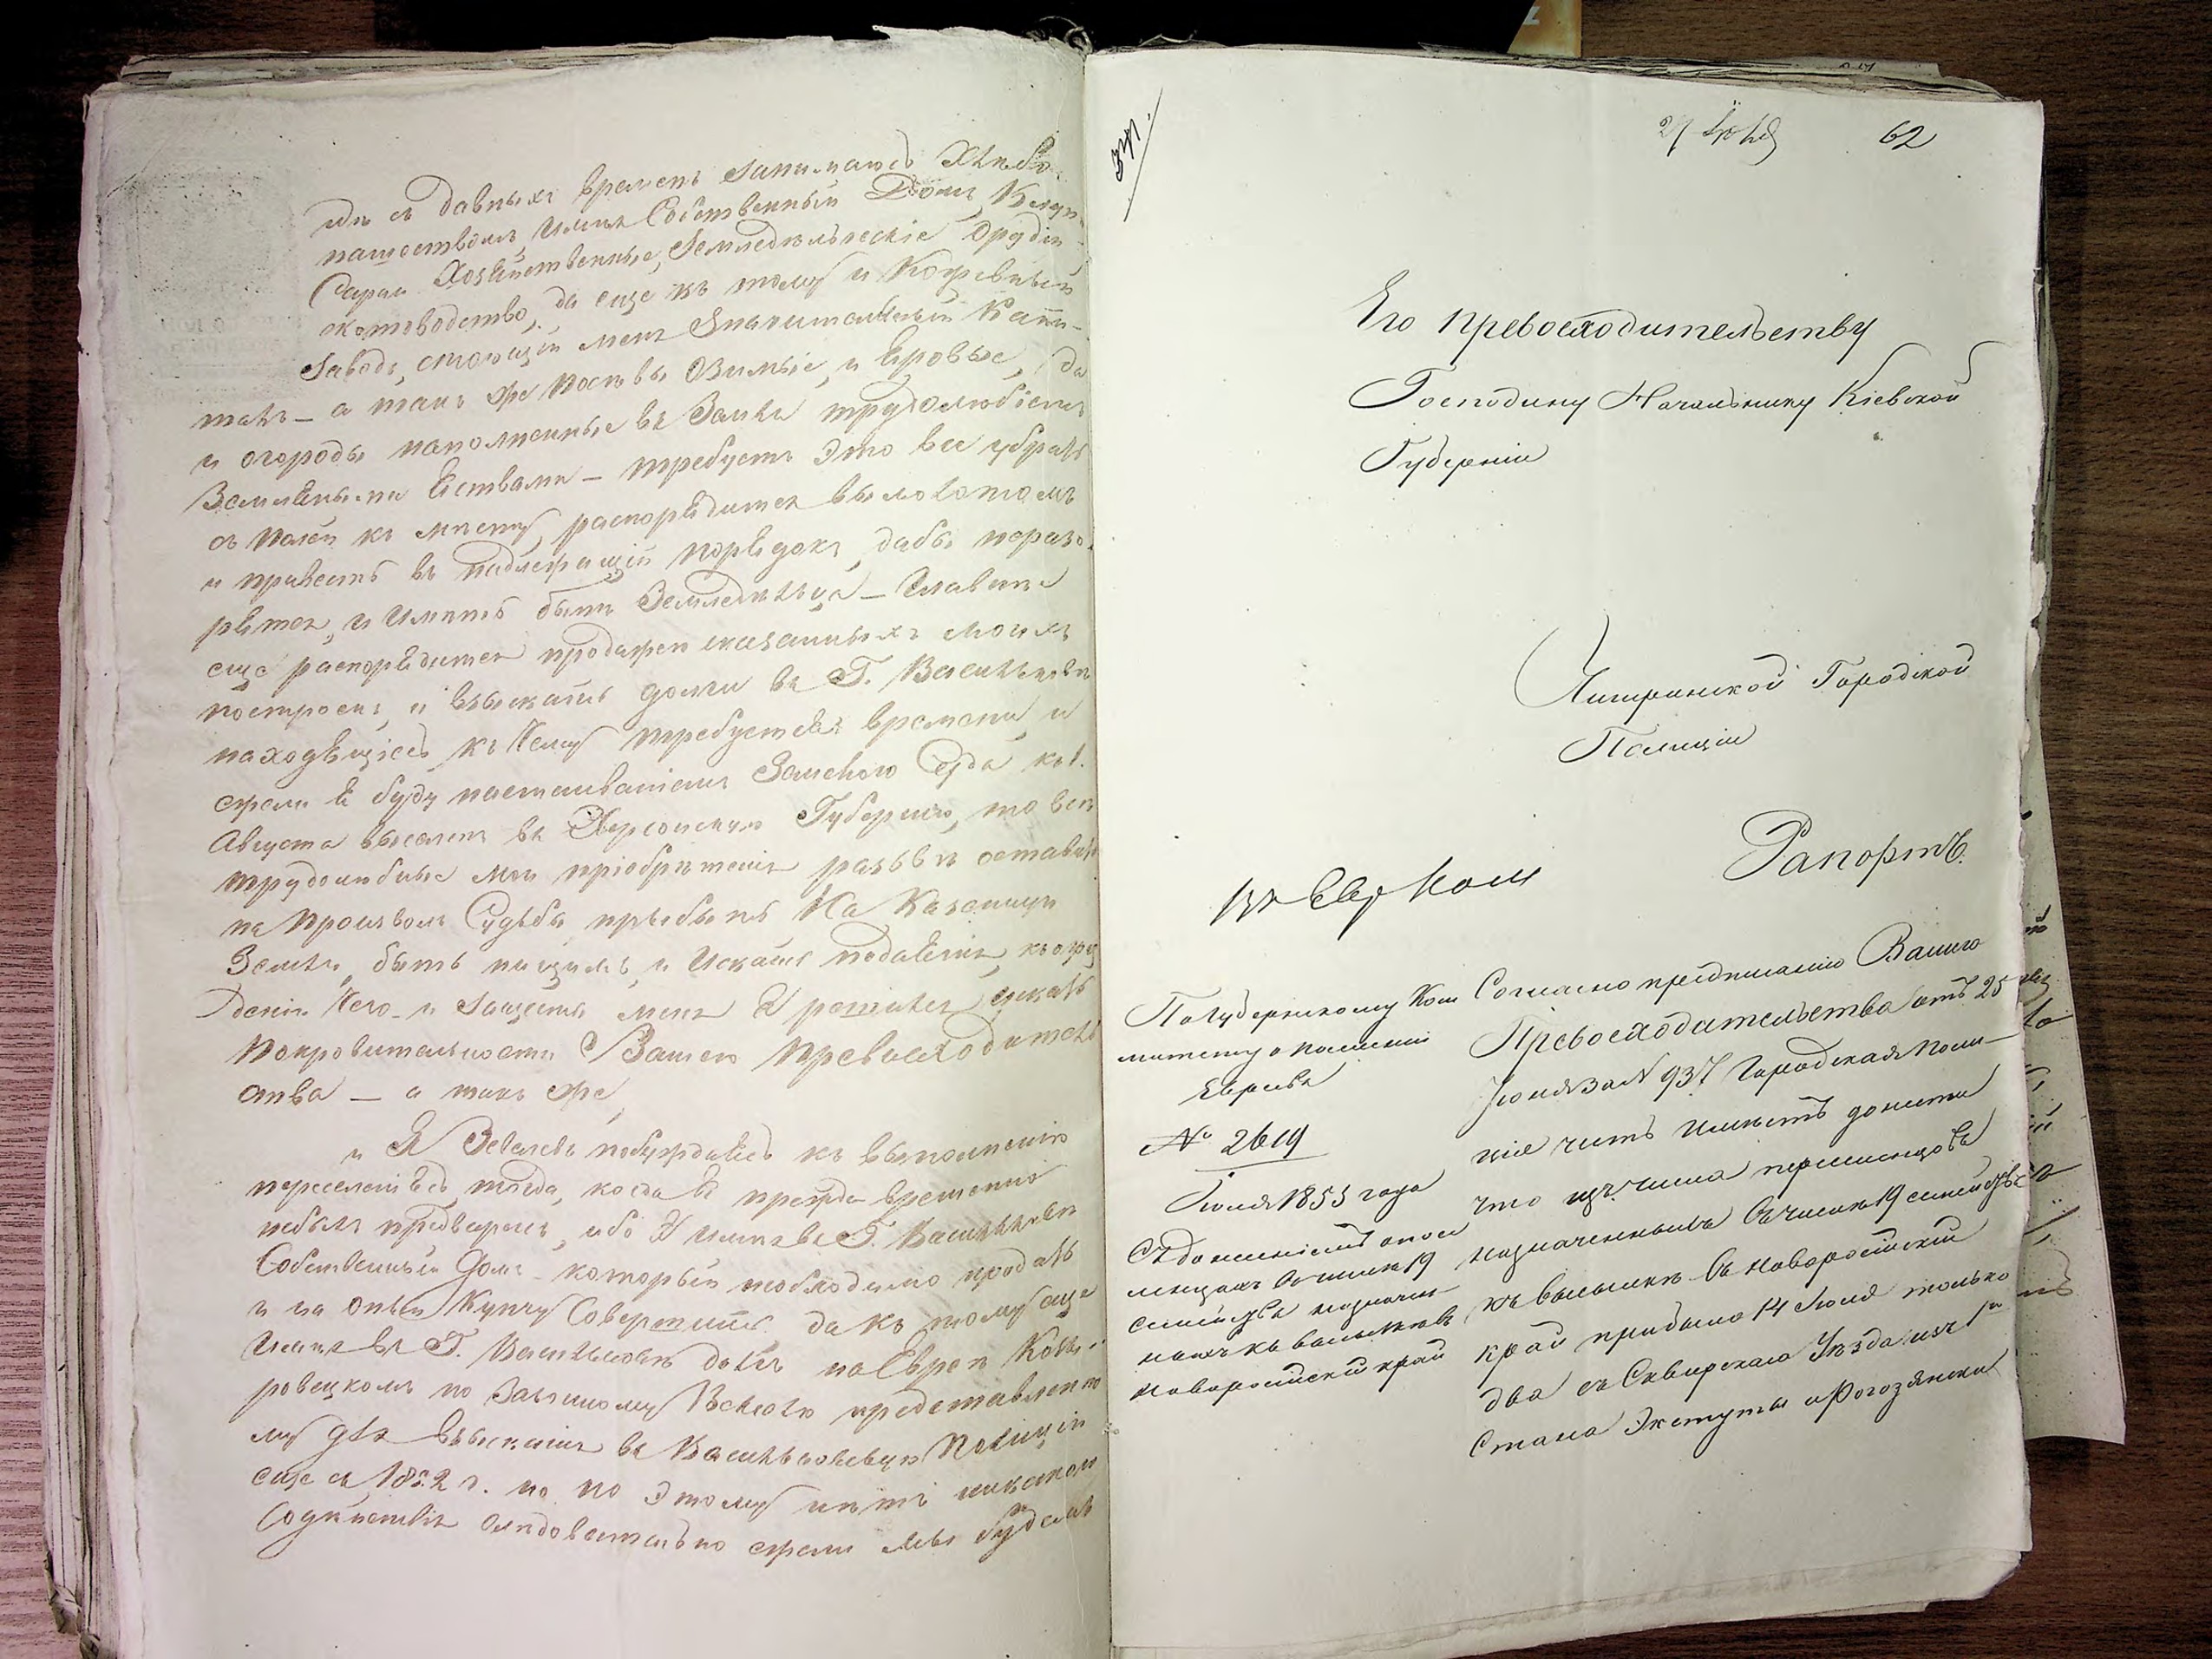 съ давныхъ временъ занимаюсь Хлебо-
пашествомъ, имея Собственный Домъ,
Сараи Хозяйственные, Земледельческіе орудіи
скотоводство, да еще къ тому и Кожевный
Заводъ, стоющій мене Значительный Капи-
талъ — а такъ же посевы Озимые, и Яровые, да
и огороды наполненные въ Земле трудолюбіемъ
Земляными Яствами — требуетъ Это все убрать
съ полей къ месту, распорядится вымолотомъ
и привесть въ надлежащій порядокъ, дабы неразо-
рятся, и иметь бытъ Земледельца — Главнее
еще распорядится продажею сказанныхъ моихъ
построекъ, и взыскать долги въ Г. Василькове
находящіесь къ Чему требуется времени, и
ежели Я буду настаиваніемъ Земского Суда къ 1.
Августа выселенъ въ Херсонскую Губернію, то все
трудолюбные мои пріобретенія разве оставить
на произволъ Судьбы прыбыть На Казенную
Землю, быть нищимъ, и Искать подаянія,
Чего и Защеты мене Я решился искать
покровительности Вашего Превосходитель
ства — а такъ же
и Я Зевелевъ побуждаюсь къ выполненію
переселенія тогда, когда Я прежде временно
небылъ предваренъ, ибо Я имею въ Г. Василькове
Собственный Домъ который необходимо продать
и на оный Купчу Совершить, да къ тому еще
Имею въ Г. Василькове долгъ на Еврее
ровецкомъ по Заемному Векселю представленно
му для взысканія въ Васильковскую Полицію
еще съ 1852 г. но по Этому нетъ никакого
Содействія следовательно ежели мы будемъ
341.
27 Іюля
62
Его Превосходительству
Господину Начальнику Кіевской
Губерніи
Липринской Городской
Полиціи
Рапортъ.
По Губернскому Ком
митету о поселеніи
Евреевъ
№ 2619
Іюля 1853 года
Съ донесеніемъ о посе
ленцахъ въ числе 19
семействъ назначен-
ныхъ къ высылке въ
Новоросійскій край
Согласно предписанію Вашего
Превосходительства отъ 25
Іюня за № 937 Городская Поли-
ція честь имеетъ донести
что изъ числа переселенцовъ
назначенныхъ въ числе 19 семействъ
къ высылке въ Новоросійскій
край прибыло 14 Іюля только
два съ Сквирскаго Уезда изъ 1го
Стана